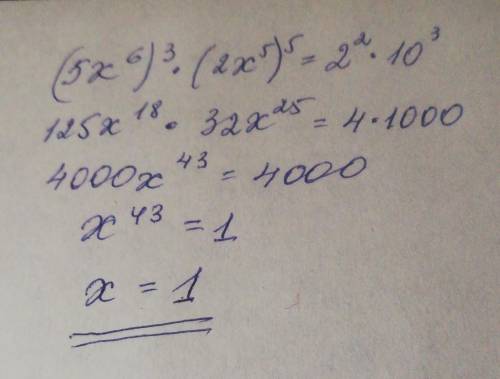 (5x⁶)³·(2x⁵)⁵=2²·10³
125x¹⁸·32x²⁵=4·1000
4000x⁴³=4000
x⁴³=1
x=1